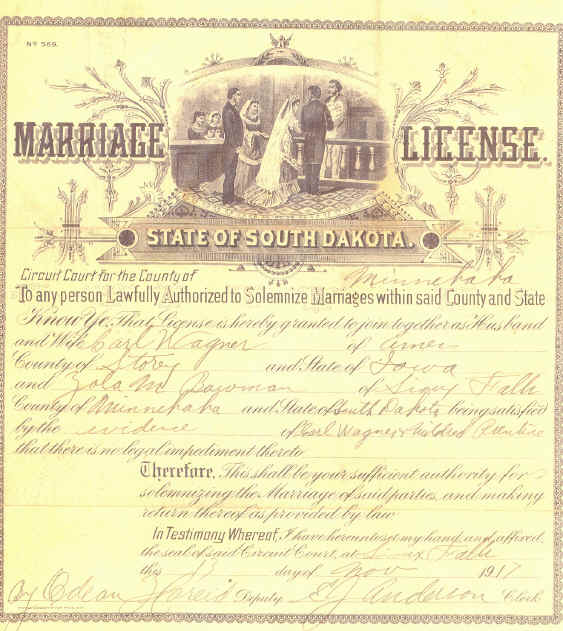 Nº 569.
MARRIAGE LICENSE.
STATE OF SOUTH DAKOTA.
Circuit Court for the County of Minnehaha
To any person Lawfully Authorized to Solemnize Marriages within said County and State
Know Ye, That License is hereby granted to join together as Husband
and Wife Carl Wagner of Ames
County of Storey and State of Iowa
and Zola M Bowman of Sioux Falls
County of Minnehaha and State of South Dakota being satisfied
by the evidence of Carl Wagner & Mildred
that there is no legal impediment thereto
Therefore, This shall be your sufficient authority for
solemnizing the Marriage of said parties, and making
return thereof as provided by law
In Testimony Whereof, I have hereunto set my hand and affixed
the seal of said Circuit Court, at Sioux Falls
this 13 day of Nov 1917
By Deputy. Anderson Clerk